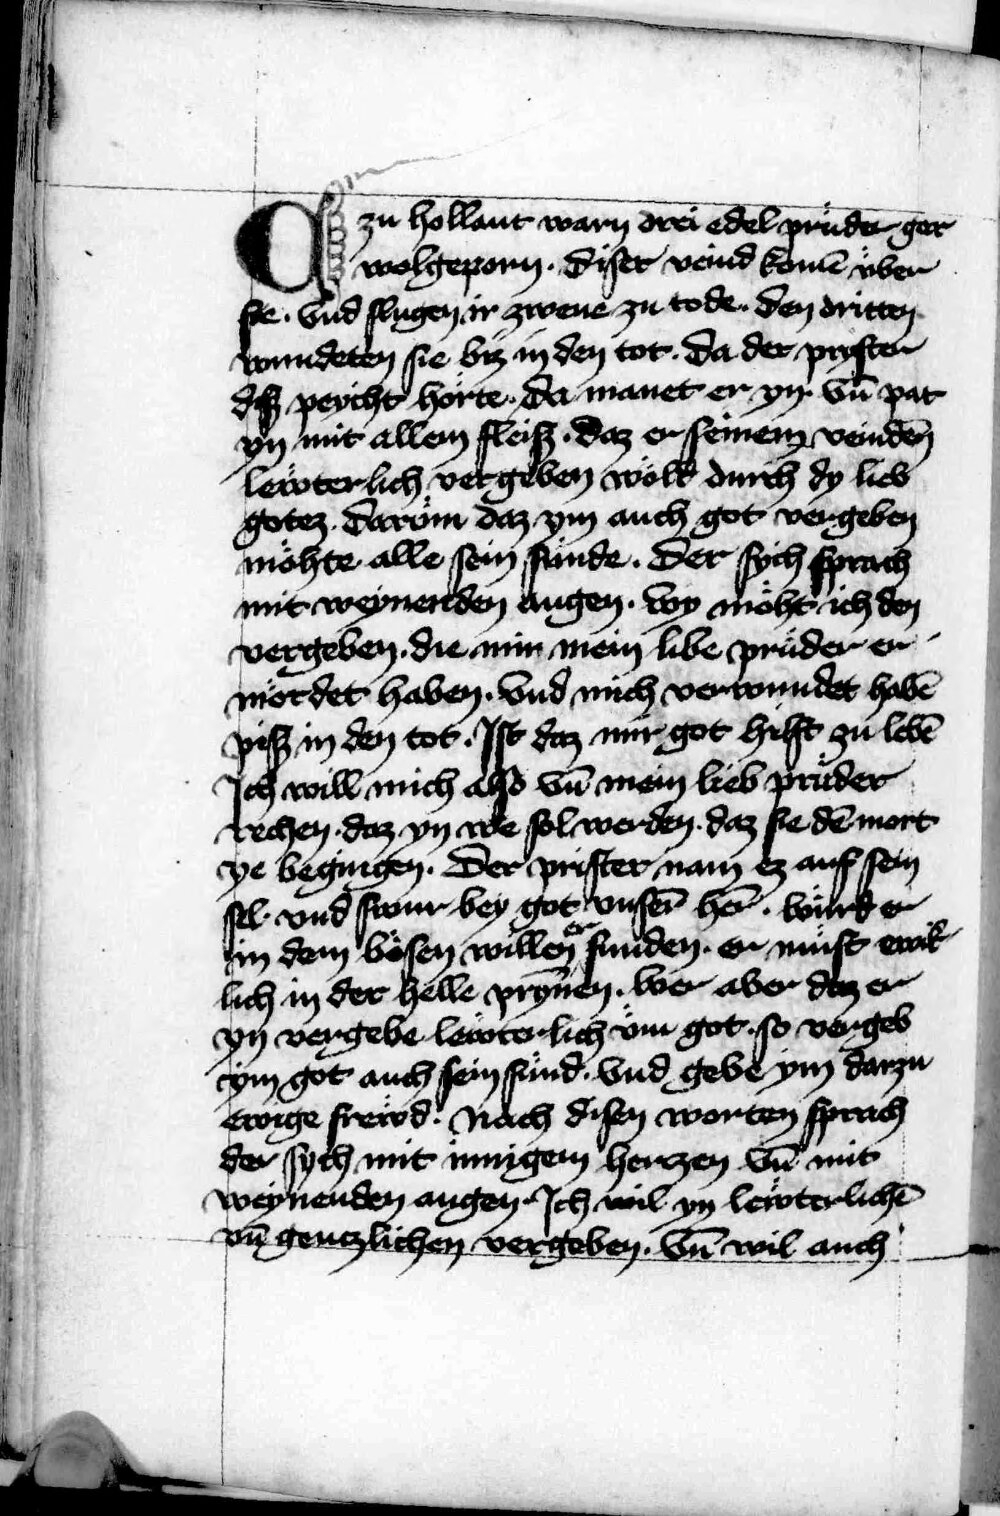 zu hollant warn drei edel prüder ger
wolgeporn. Diser veind komē über
sie. Vnd slugen ir zwene zu tode. Den dritten
wundeten sie biz in den tot. Da der prister
diß peycht hörte. Da manet er yn. Vn̄ pat
yn mit allem fleiß. Daz er seinem veindēn
lewterlich vergeben wölt durch dy lieb
gotez. Darüm daz ym auch got vergeben
möhte alle sein sünde. Der sych sprach
mit weynenden augen. Wy möht ich den
vergeben. die mir mein libe prüder er
mördet haben. Vnd mich verwundet habē
piß in den tot. Ist daz mir got hilft zu lebē
Ich will mich also vn̄ mein lieb prüder
rechen. daz yn we sol werden. daz sie dē mort
ye begingen. Der prister nam ez auf sein
sel. vnd swur bey got vnserī herī. würd er
in dem bösen willen er funden. er müst ewik
lich in der helle prÿn̄en. Wer aber daz er
yn vergebe lewterlich üm got. so vergeb
ym got auch sein sünd. Vnd gebe ym darzu
ewige frewd. Nach disen worten sprach
der sych mit innigem herczen vn̄ mit
weynenden augen. Ich wil yn lewterlichē
vn̄ genczlichen vergeben. Vn̄ wil auch